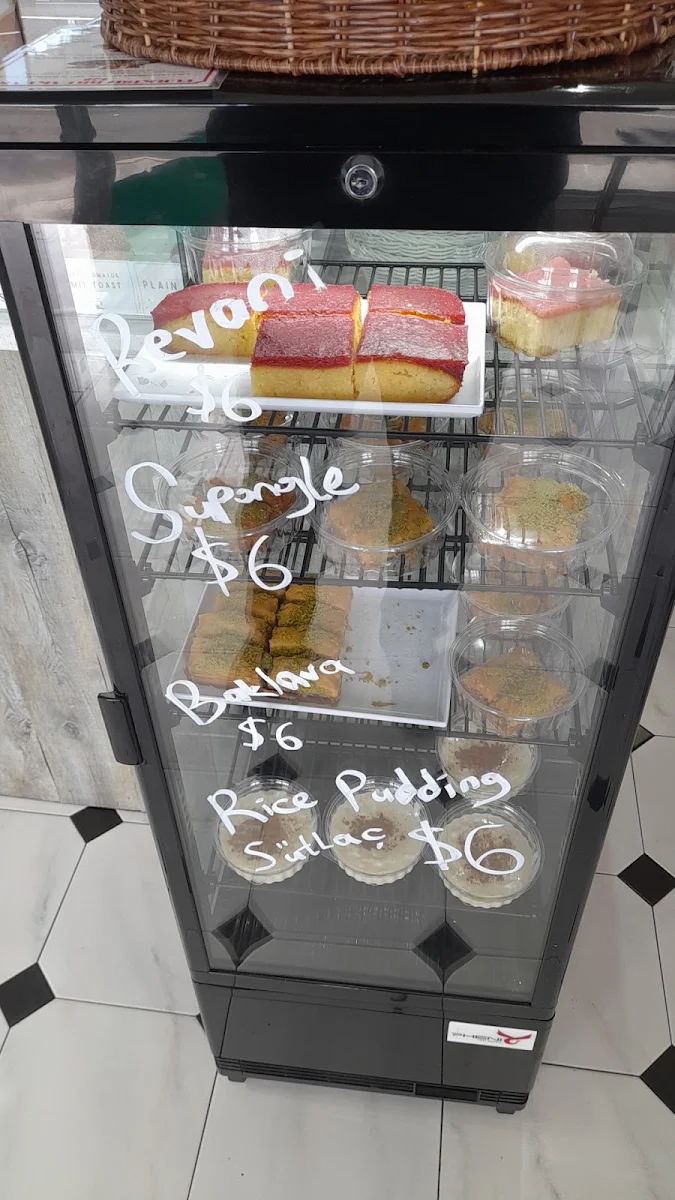 PLAIN
TOAST
Revani
$6
Supangle
$6
Baklava
$6
Rice Pudding
Sütlaç $6